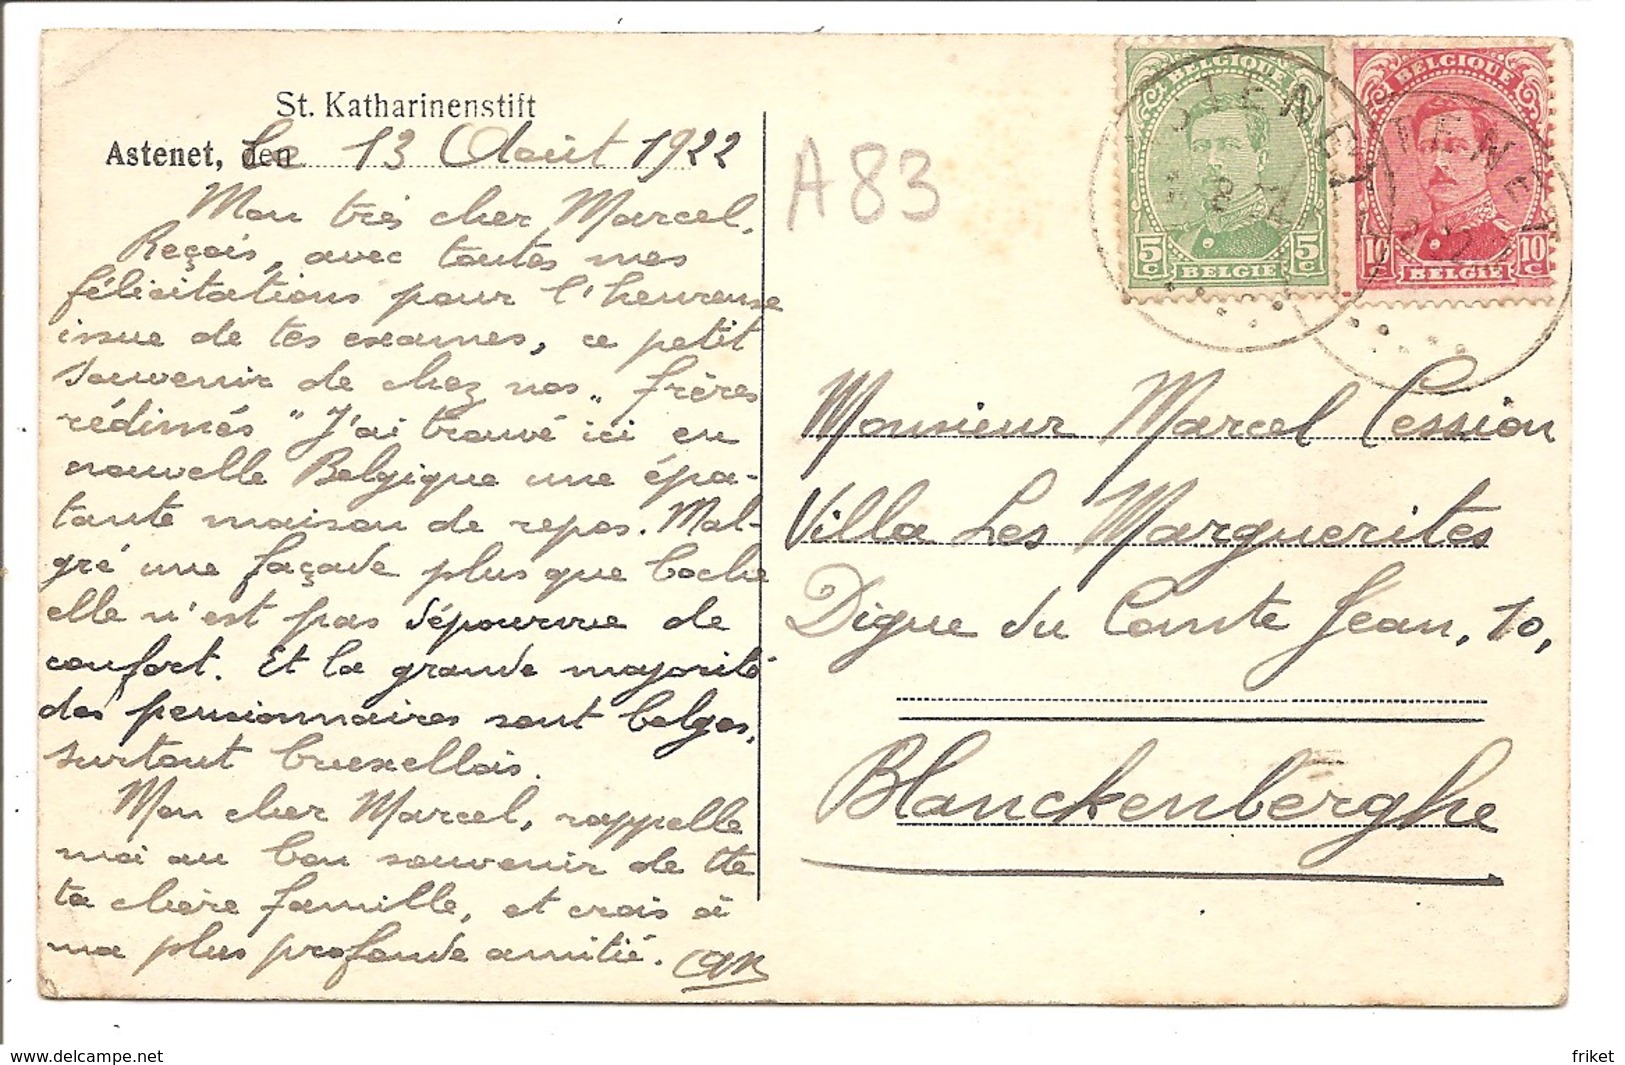 St. Katharinenstift
Astenet, den
Le 13 Août 1922
A83
BELGIQUE
5c 5c
BELGIE
BELGIQUE
10c 10c
BELGIE
Mon très cher Marcel,
Reçois, avec toutes mes
félicitations pour l'heureuse
issue de tes examens, ce petit
souvenir de chez nos "frères
rédimés" J'ai trouvé ici en
nouvelle Belgique une épa-
tante maison de repos. Mal-
gré une façade plus que boche
elle n'est pas dépourvue de
confort. Et la grande majorité
des pensionnaires sont belges,
surtout bruxellois.
Mon cher Marcel, rappelle
moi au bon souvenir de tte
ta chère famille, et crois à
ma plus profonde amitié.
Monsieur Marcel Cession
Villa Les Marguerites
Digue du Comte Jean, 10,
Blanckenberghe
delcampe.net
friket